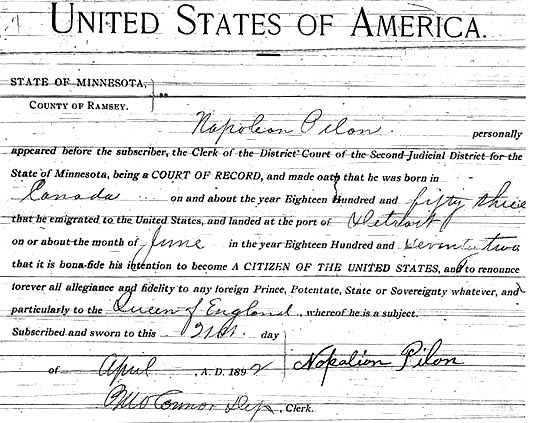 UNITED STATES OF AMERICA.
STATE OF MINNESOTA,
COUNTY OF RAMSEY. } ss.
Napoleon Pilon. personally
appeared before the subscriber, the Clerk of the District Court of the Second Judicial District for the
State of Minnesota, being a COURT OF RECORD, and made oath that he was born in
Canada on and about the year Eighteen Hundred and fifty three
that he emigrated to the United States, and landed at the port of Detroit
on or about the month of June in the year Eighteen Hundred and seventy two
that it is bona-fide his intention to become A CITIZEN OF THE UNITED STATES, and to renounce
forever all allegiance and fidelity to any foreign Prince, Potentate, State or Sovereignty whatever, and
particularly to the Queen of England, whereof he is a subject.
Subscribed and sworn to this 21st. day
of April, A. D. 1892 Napolion Pilon
Connor Dep, Clerk.